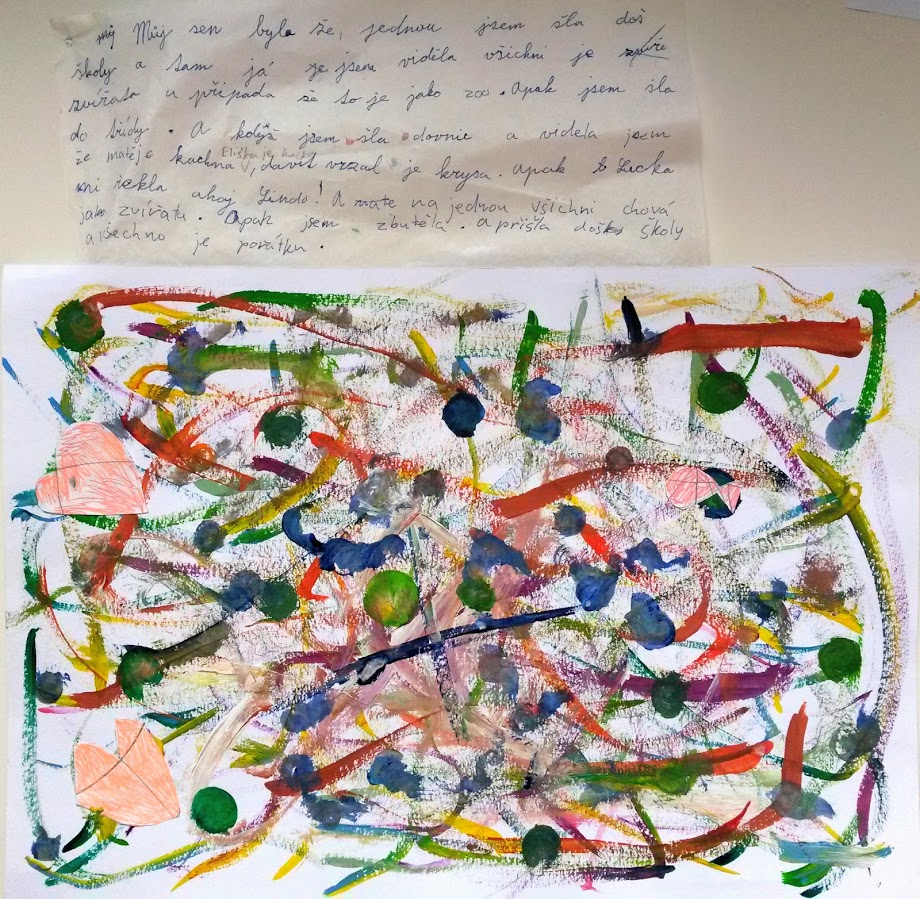 můj Můj sen byla že, jednou jsem šla doš
školy a tam já že jsem viděla všichni je
zvířata a připada že to je jako zoo. Apak jsem šla
do třídy. A když jsem šla dovnic a videla jsem
Eliška je
že matěje kachna V, david vrzal je krysa. apak Lucka
mi řekla ahoj Lindo! A mate na jednou všichni chová
jako zvířatu. Apak jsem zbuťela. apřišla doško školy
a všechno je pořátku.